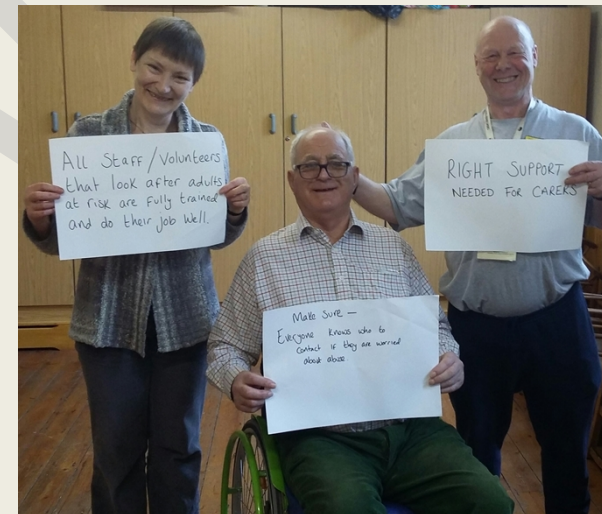 All Staff/Volunteers
that look after adults
at risk are fully trained
and do their job well.
RIGHT SUPPORT
NEEDED FOR CARERS
Make sure —
Everyone knows who to
contact if they are worried
about abuse